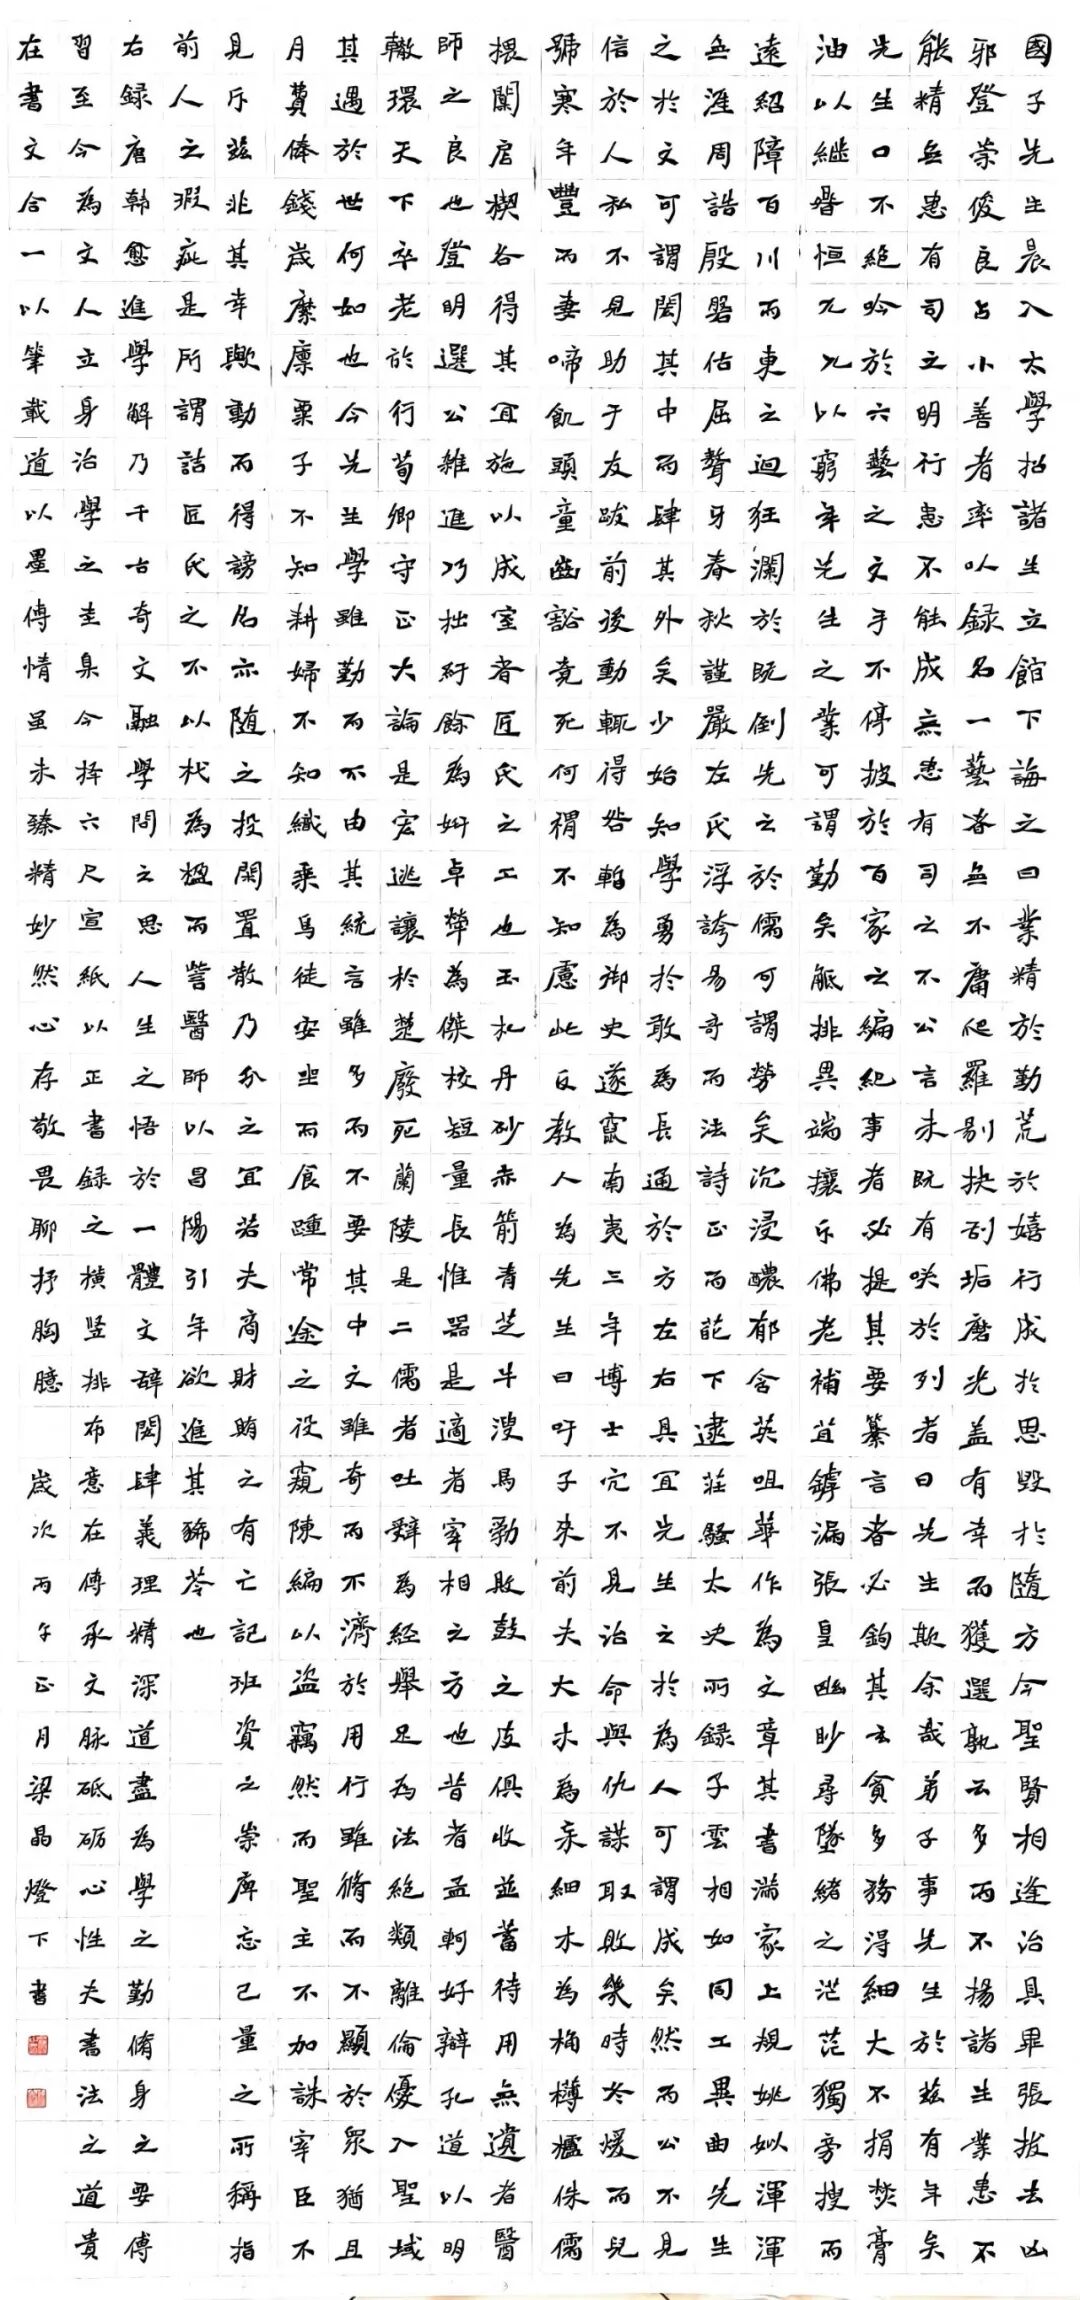 國子先生晨入太學招諸生立館下誨之曰業精於勤荒於嬉行成於思毀於隨方今聖賢相逢治具畢張拔去凶
邪登崇俊良占小善者率以録名一藝者無不庸爬羅剔抉刮垢磨光蓋有幸而獲選孰云多而不揚諸生業患不
能精無患有司之明行患不能成無患有司之不公言未既有笑於列者曰先生欺余哉弟子事先生於茲有年矣
先生口不絕吟於六藝之文手不停披於百家之編紀事者必提其要纂言者必鉤其玄貪多務得細大不捐焚膏
油以繼晷恒兀兀以窮年先生之業可謂勤矣觝排異端攘斥佛老補苴罅漏張皇幽眇尋墜緒之茫茫獨旁搜而
遠紹障百川而東之迴狂瀾於既倒先之於儒可謂勞矣沉浸醲郁含英咀華作為文章其書滿家上規姚姒渾渾
無涯周誥殷盤佶屈聱牙春秋謹嚴左氏浮誇易奇而法詩正而葩下逮莊騷太史所録子雲相如同工異曲先生
之於文可謂閎其中而肆其外矣少始知學勇於敢為長通於方左右具宜先生之於為人可謂成矣然而公不見
信於人私不見助于友跋前後動輒得咎暫為御史遂竄南夷三年博士冗不見治命與仇謀取敗幾時冬煖而兒
號寒年豐而妻啼飢頭童齒豁竟死何裨不知慮此反教人為先生曰吁子來前夫大木為杗細木為桷欂櫨侏儒
椳闑扂楔各得其宜施以成室者匠氏之工也玉札丹砂赤箭青芝牛溲馬勃敗鼓之皮俱收並蓄待用無遺者醫
師之良也登明選公雜進巧拙紆餘為姸卓犖為傑校短量長惟器是適者宰相之方也昔者孟軻好辯孔道以明
轍環天下卒老於行荀卿守正大論是宏逃讓於楚廢死蘭陵是二儒者吐辭為經舉足為法絕類離倫優入聖域
其遇於世何如也今先生學雖勤而不由其統言雖多而不要其中文雖奇而不濟於用行雖脩而不顯於眾猶且
月費俸錢歲糜廩粟子不知耕婦不知織乘馬徒安坐而食踵常途之役窺陳編以盜竊然而聖主不加誅宰臣不
見斥茲非其幸歟動而得謗名亦随之投閑置散乃分之宜若夫商財賄之有亡記班資之崇庳忘己量之所稱指
前人之瑕疵是所謂詰匠氏之不以杙為楹而訾醫師以昌陽引年欲進其豨苓也
右録唐韓愈進學解乃千古奇文融學問之思人生之悟於一體文辭閎肆義理精深道盡為學之勤脩身之要傳
習至今為文人立身治學之圭臬今擇六尺宣紙以正書録之橫豎排布意在傳承文脉砥砺心性夫書法之道貴
在書文合一以筆載道以墨傳情虽未臻精妙然心存敬畏聊抒胸臆 歲次丙午正月梁晶燈下書